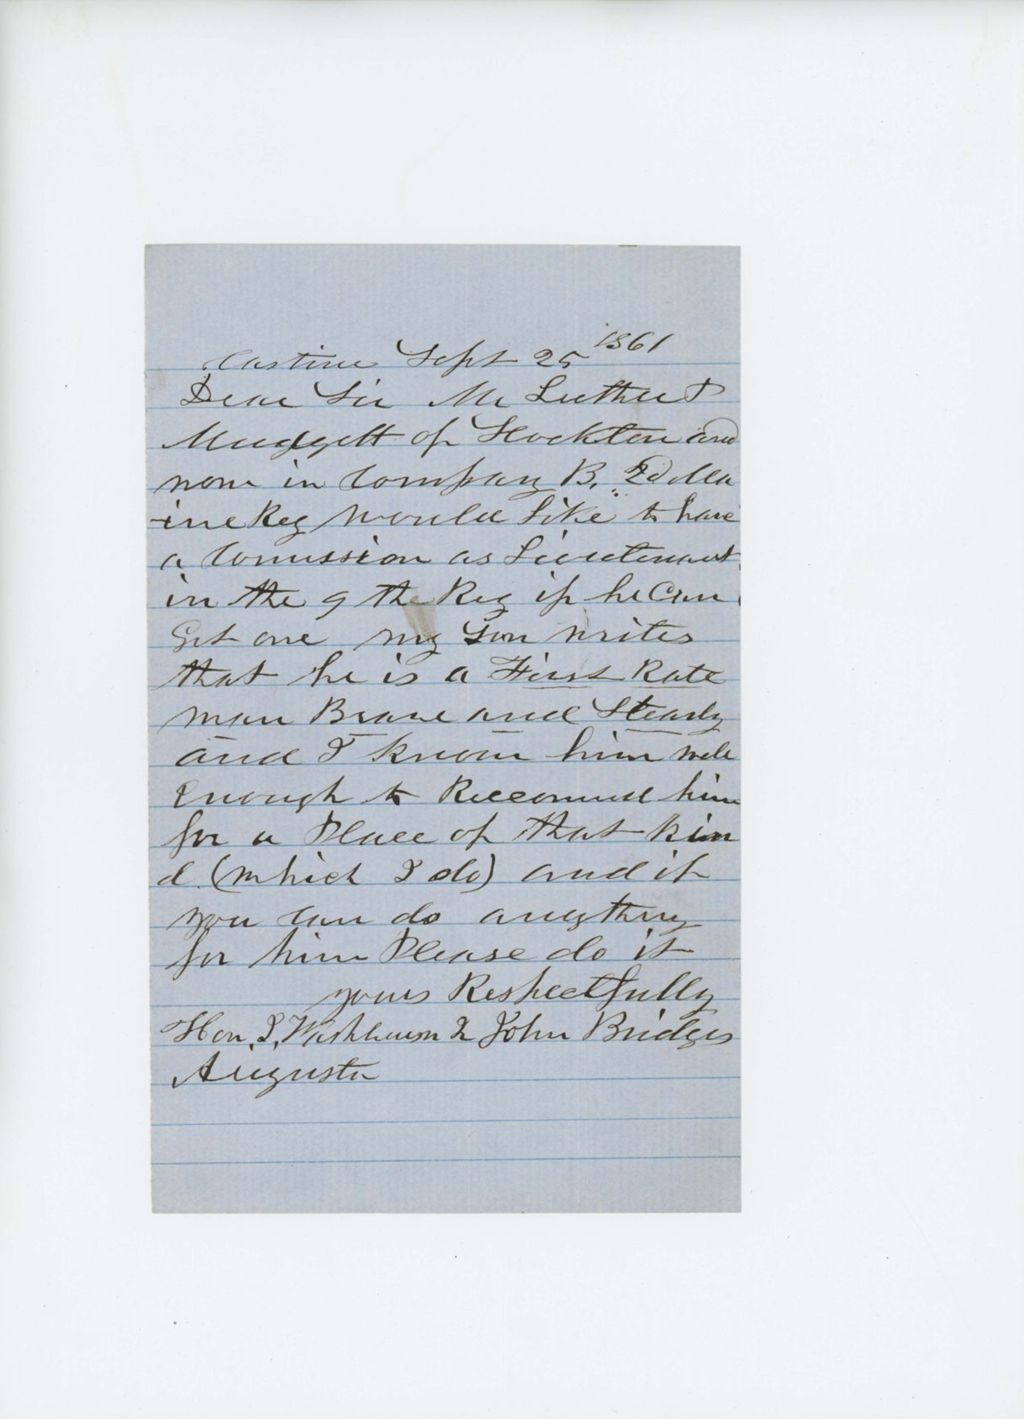 Castine Sept 25 1861
Dear Sir Mr Luther P
Mudgett of Stockton and
now in Company B. 2d Ma
ine Reg would like to have
a Comission as Lieutenant
in the 9 th Reg if he Can
Get one my Son writes
that he is a First Rate
man Brave and Steady
and I know him well
Enough to Reccomend him
for a Place of that Kin
d (which I do) and if
you can do anything
for him Please do it
yours Respectfully
Hon. I. Washburn Jr John Bridges
Augusta